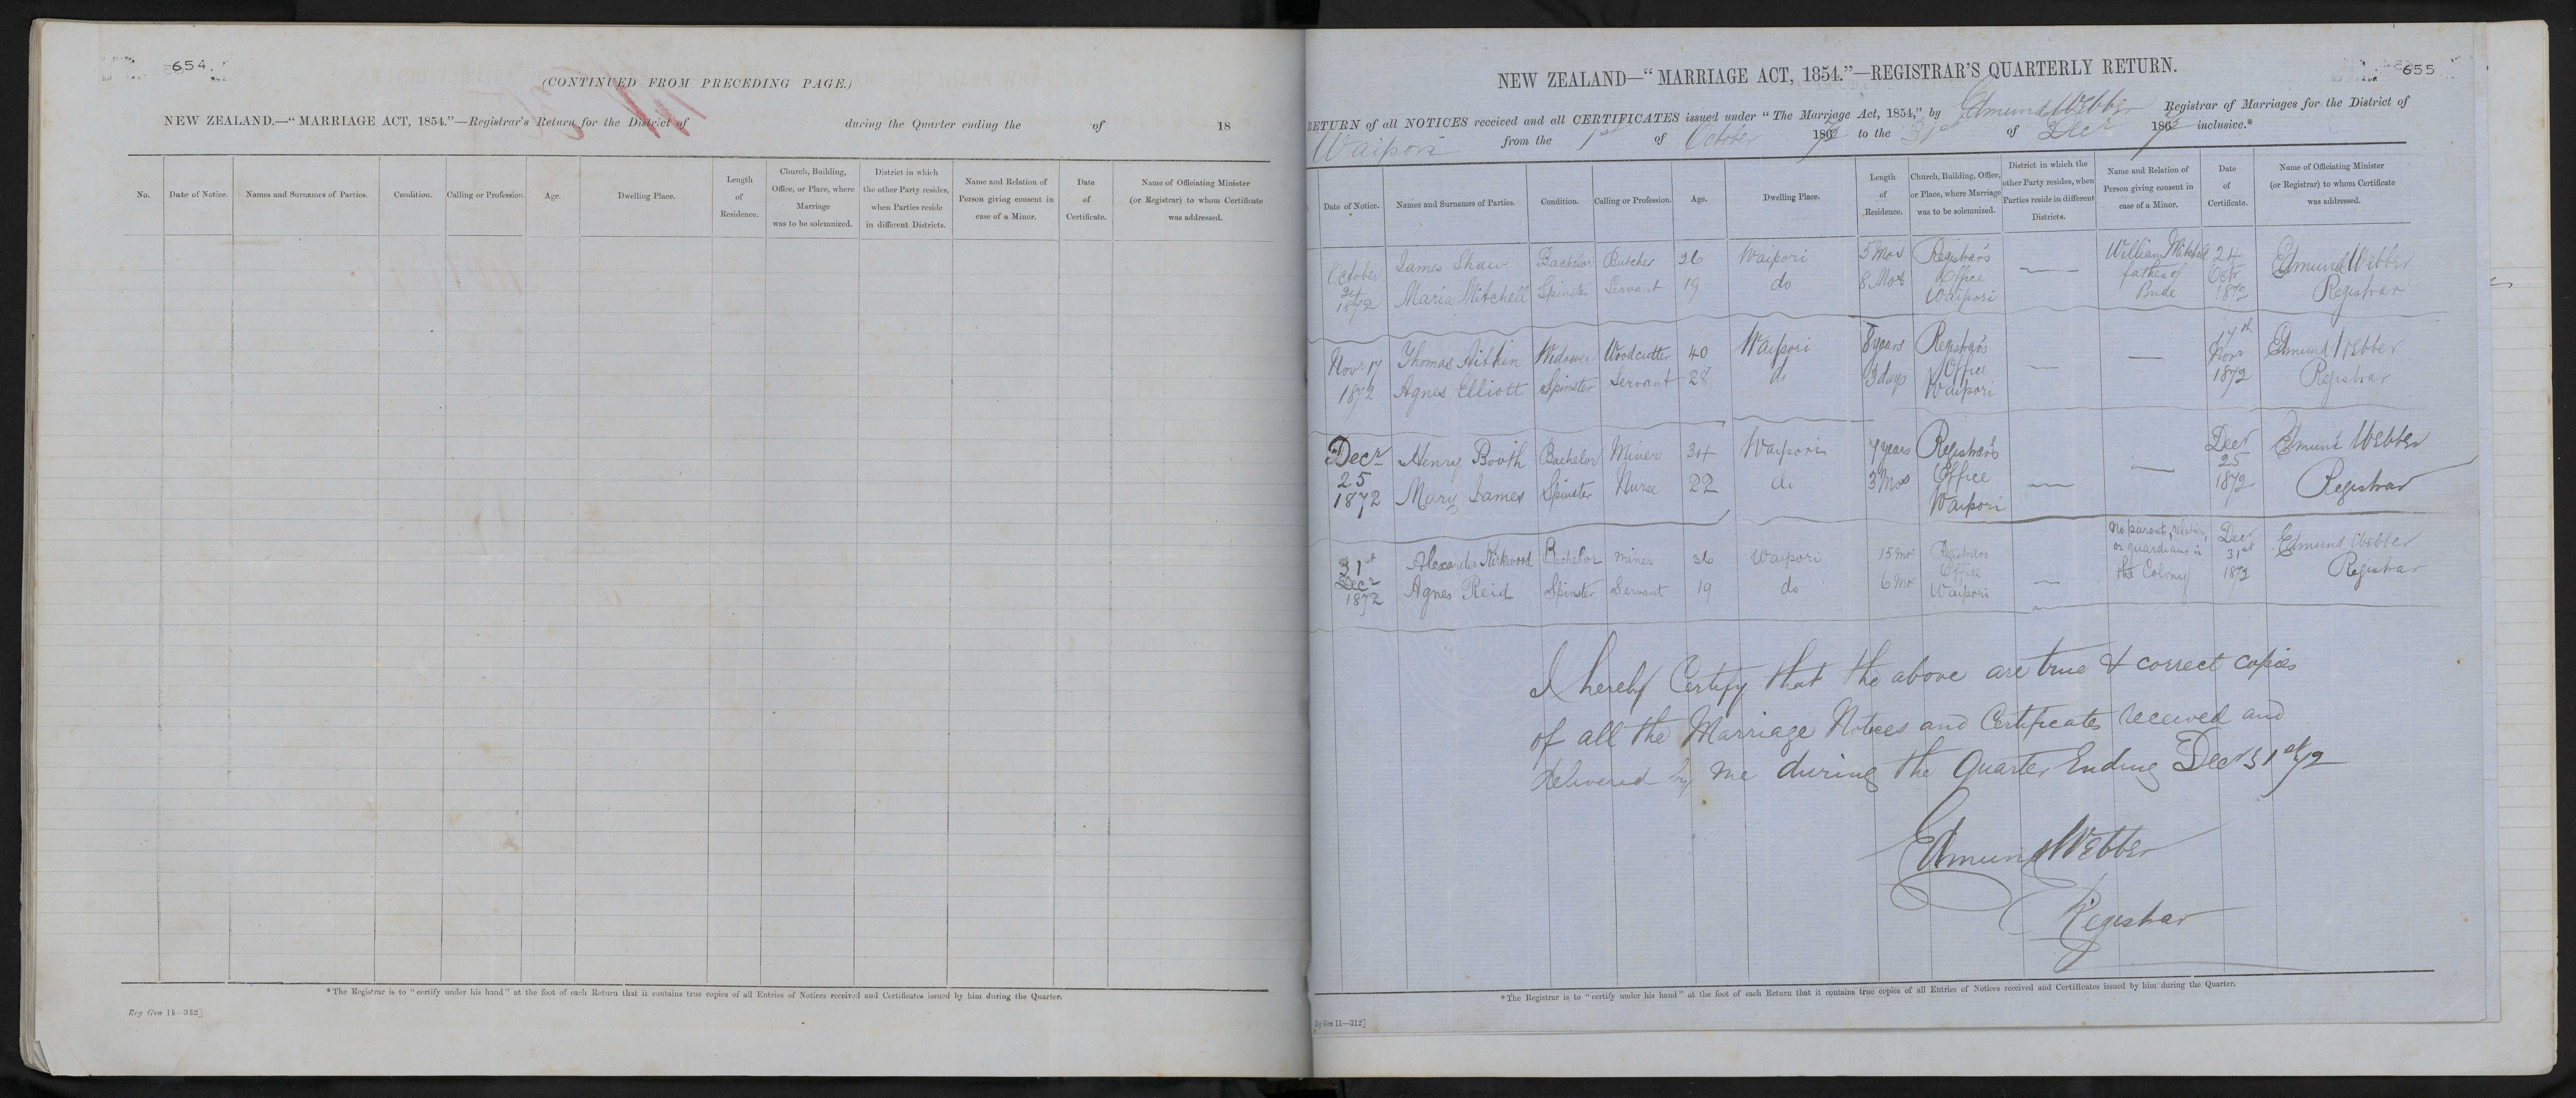 654
(CONTINUED FROM PRECEDING PAGE.)
NEW ZEALAND.—"MARRIAGE ACT, 1854."—Registrar's Return for the District of during the Quarter ending the of 18
No. Date of Notice. Names and Surnames of Parties. Condition. Calling or Profession. Age. Dwelling Place. Length of Residence. Church, Building, Office, or Place, where Marriage was to be solemnized. District in which the other Party resides, when Parties reside in different Districts. Name and Relation of Person giving consent in case of a Minor. Date of Certificate. Name of Officiating Minister (or Registrar) to whom Certificate was addressed.
*The Registrar is to "certify under his hand" at the foot of each Return that it contains true copies of all Entries of Notices received and Certificates issued by him during the Quarter.
Reg Gen 11—312]
655
NEW ZEALAND—"MARRIAGE ACT, 1854."—REGISTRAR'S QUARTERLY RETURN.
RETURN of all NOTICES received and all CERTIFICATES issued under "The Marriage Act, 1854," by Edmund Webber Registrar of Marriages for the District of
Waipori from the 1st of October 1872 to the 31st of Decr 1872 inclusive.*
Date of Notice. Names and Surnames of Parties. Condition. Calling or Profession. Age. Dwelling Place. Length of Residence. Church, Building, Office, or Place, where Marriage was to be solemnized. District in which the other Party resides, when Parties reside in different Districts. Name and Relation of Person giving consent in case of a Minor. Date of Certificate. Name of Officiating Minister (or Registrar) to whom Certificate was addressed.
October 24 1872 James Shaw Bachelor Butcher 26 Waipori 5 Mos Registrar's Office Waipori William Mitchell father of Bride 24 Octr 1872 Edmund Webber Registrar
Maria Mitchell Spinster Servant 19 do 8 Mos
Novr 17 1872 Thomas Aitkin Widower Woodcutter 40 Waipori 8 years Registrar's Office Waipori 17th Novr 1872 Edmund Webber Registrar
Agnes Elliott Spinster Servant 28 do 3 days
Decr 25 1872 Henry Booth Bachelor Miner 34 Waipori 7 years Registrar's Office Waipori Decr 25 1872 Edmund Webber Registrar
Mary James Spinster Nurse 22 do 3 Mos
31st Decr 1872 Alexander Kirkwood Bachelor Miner 36 Waipori 15 Mos Registrars Office Waipori No parent, relation, or guardians in the Colony Decr 31st 1872 Edmund Webber Registrar
Agnes Reid Spinster Servant 19 do 6 Mo
I hereby Certify that the above are true & correct copies
of all the Marriage Notices and Certificates received and
delivered by me during the Quarter Ending Decr 31st/72
Edmund Webber
Registrar
*The Registrar is to "certify under his hand" at the foot of each Return that it contains true copies of all Entries of Notices received and Certificates issued by him during the Quarter.
Reg Gen 11—312]